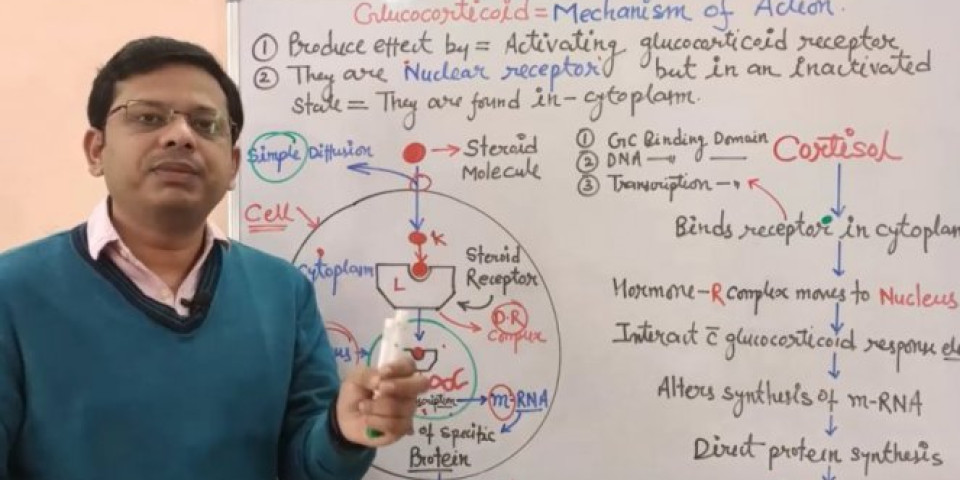 Glucocorticoid = Mechanism of Action.
① Produce effect by = Activating glucocorticoid receptor
② They are Nuclear receptor but in an inactivated
state = They are found in - cytoplasm.
Simple Diffusion
Steroid
Molecule
Cell
K
Cytoplasm
L
Steroid
Receptor
D-R
Complex
m-RNA
of specific
Protein
① GC Binding Domain
② DNA —〃—
③ Transcription —〃
Cortisol
Binds receptor in cytoplasm
Hormone-R complex moves to Nucleus
Interact c̄ glucocorticoid response
Alters synthesis of m-RNA
Direct protein synthesis